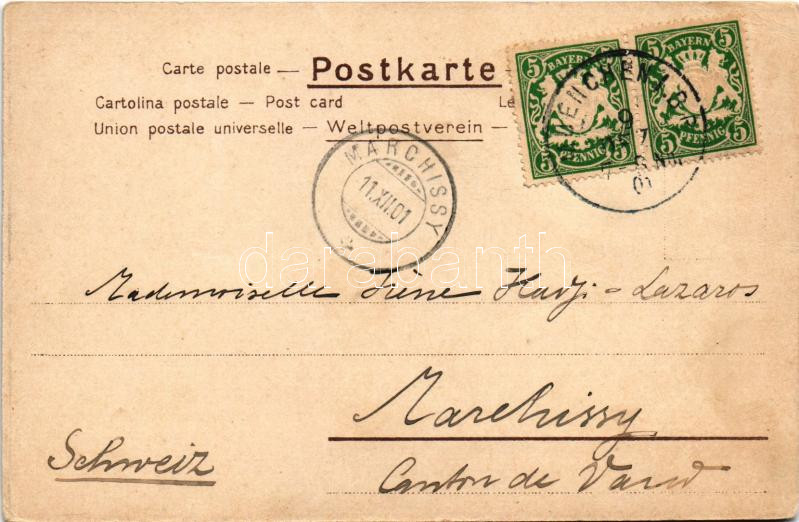 Carte postale — Postkarte —
Cartolina postale — Post card
Union postale universelle — Weltpostverein —
5 BAYERN 5
5 PFENNIG 5
5 BAYERN 5
5 PFENNIG 5
MUENCHEN I.B.P.
9
7
01
MARCHISSY
11.XII.01
darabanth
Mademoiselle Irène Hadji-Lazaros
Marchissy
Schweiz
Canton de Vaud